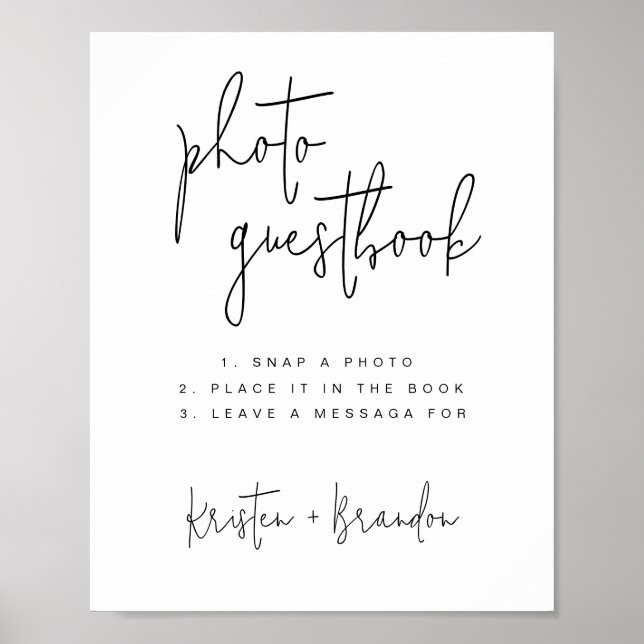 photo
guestbook
1. SNAP A PHOTO
2. PLACE IT IN THE BOOK
3. LEAVE A MESSAGA FOR
Kristen + Brandon